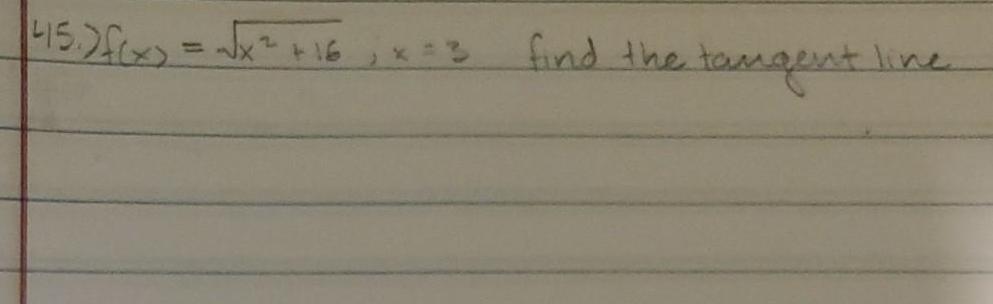 45.) f(x) = √x² + 16 , x = 3 find the tangent line